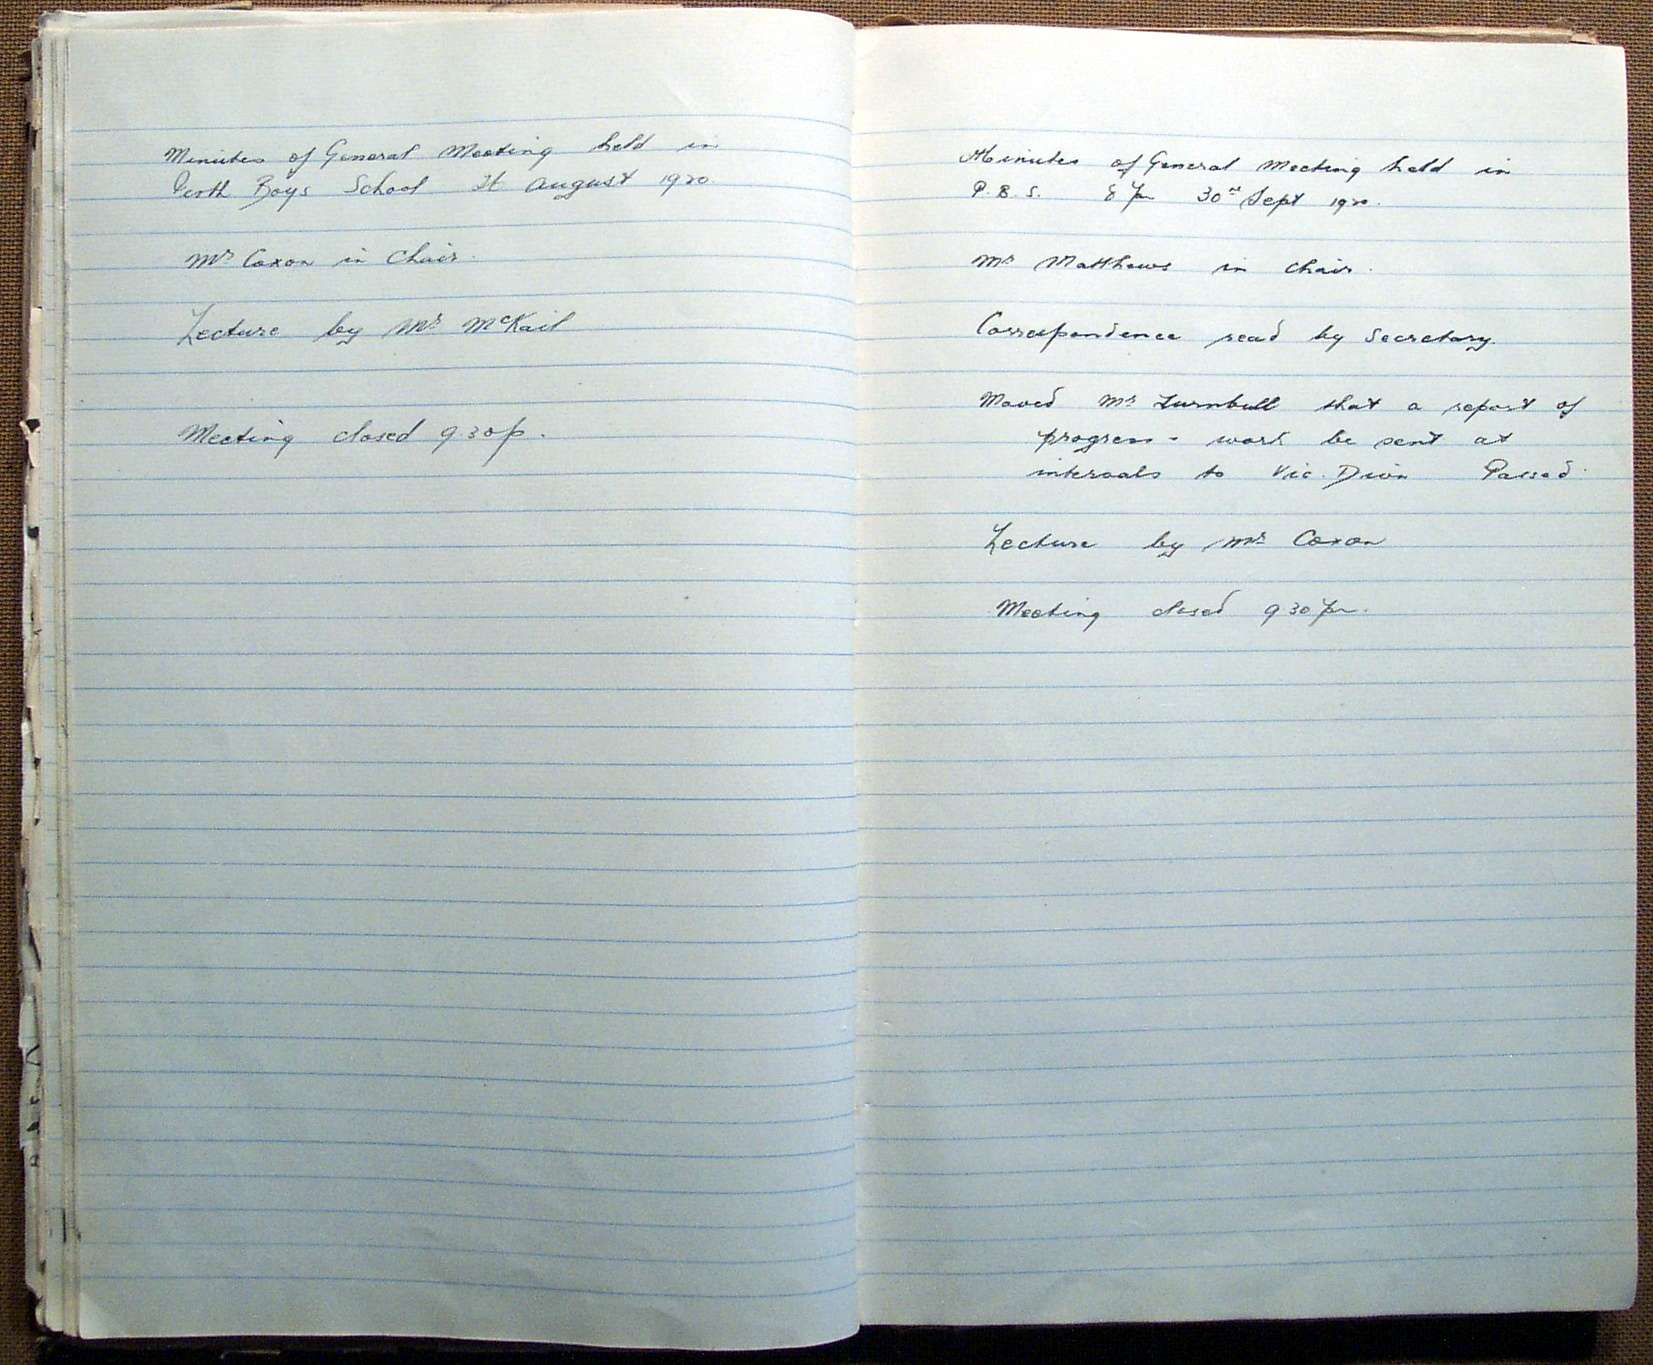 Minutes of General Meeting held in
Perth Boys School August 1920
Mr Coxon in Chair.
Lecture by Mr McKail
Meeting closed 9.30p.
Minutes of General Meeting held in
P.B.S. 8 pm 30th Sept 1920.
Mr Matthews in chair.
Correspondence read by Secretary.
Moved Mr Turnbull that a report of
progress - work be sent at
intervals to Vic. Divn Passed.
Lecture by Mr Coxon
Meeting closed 9 30 pm.